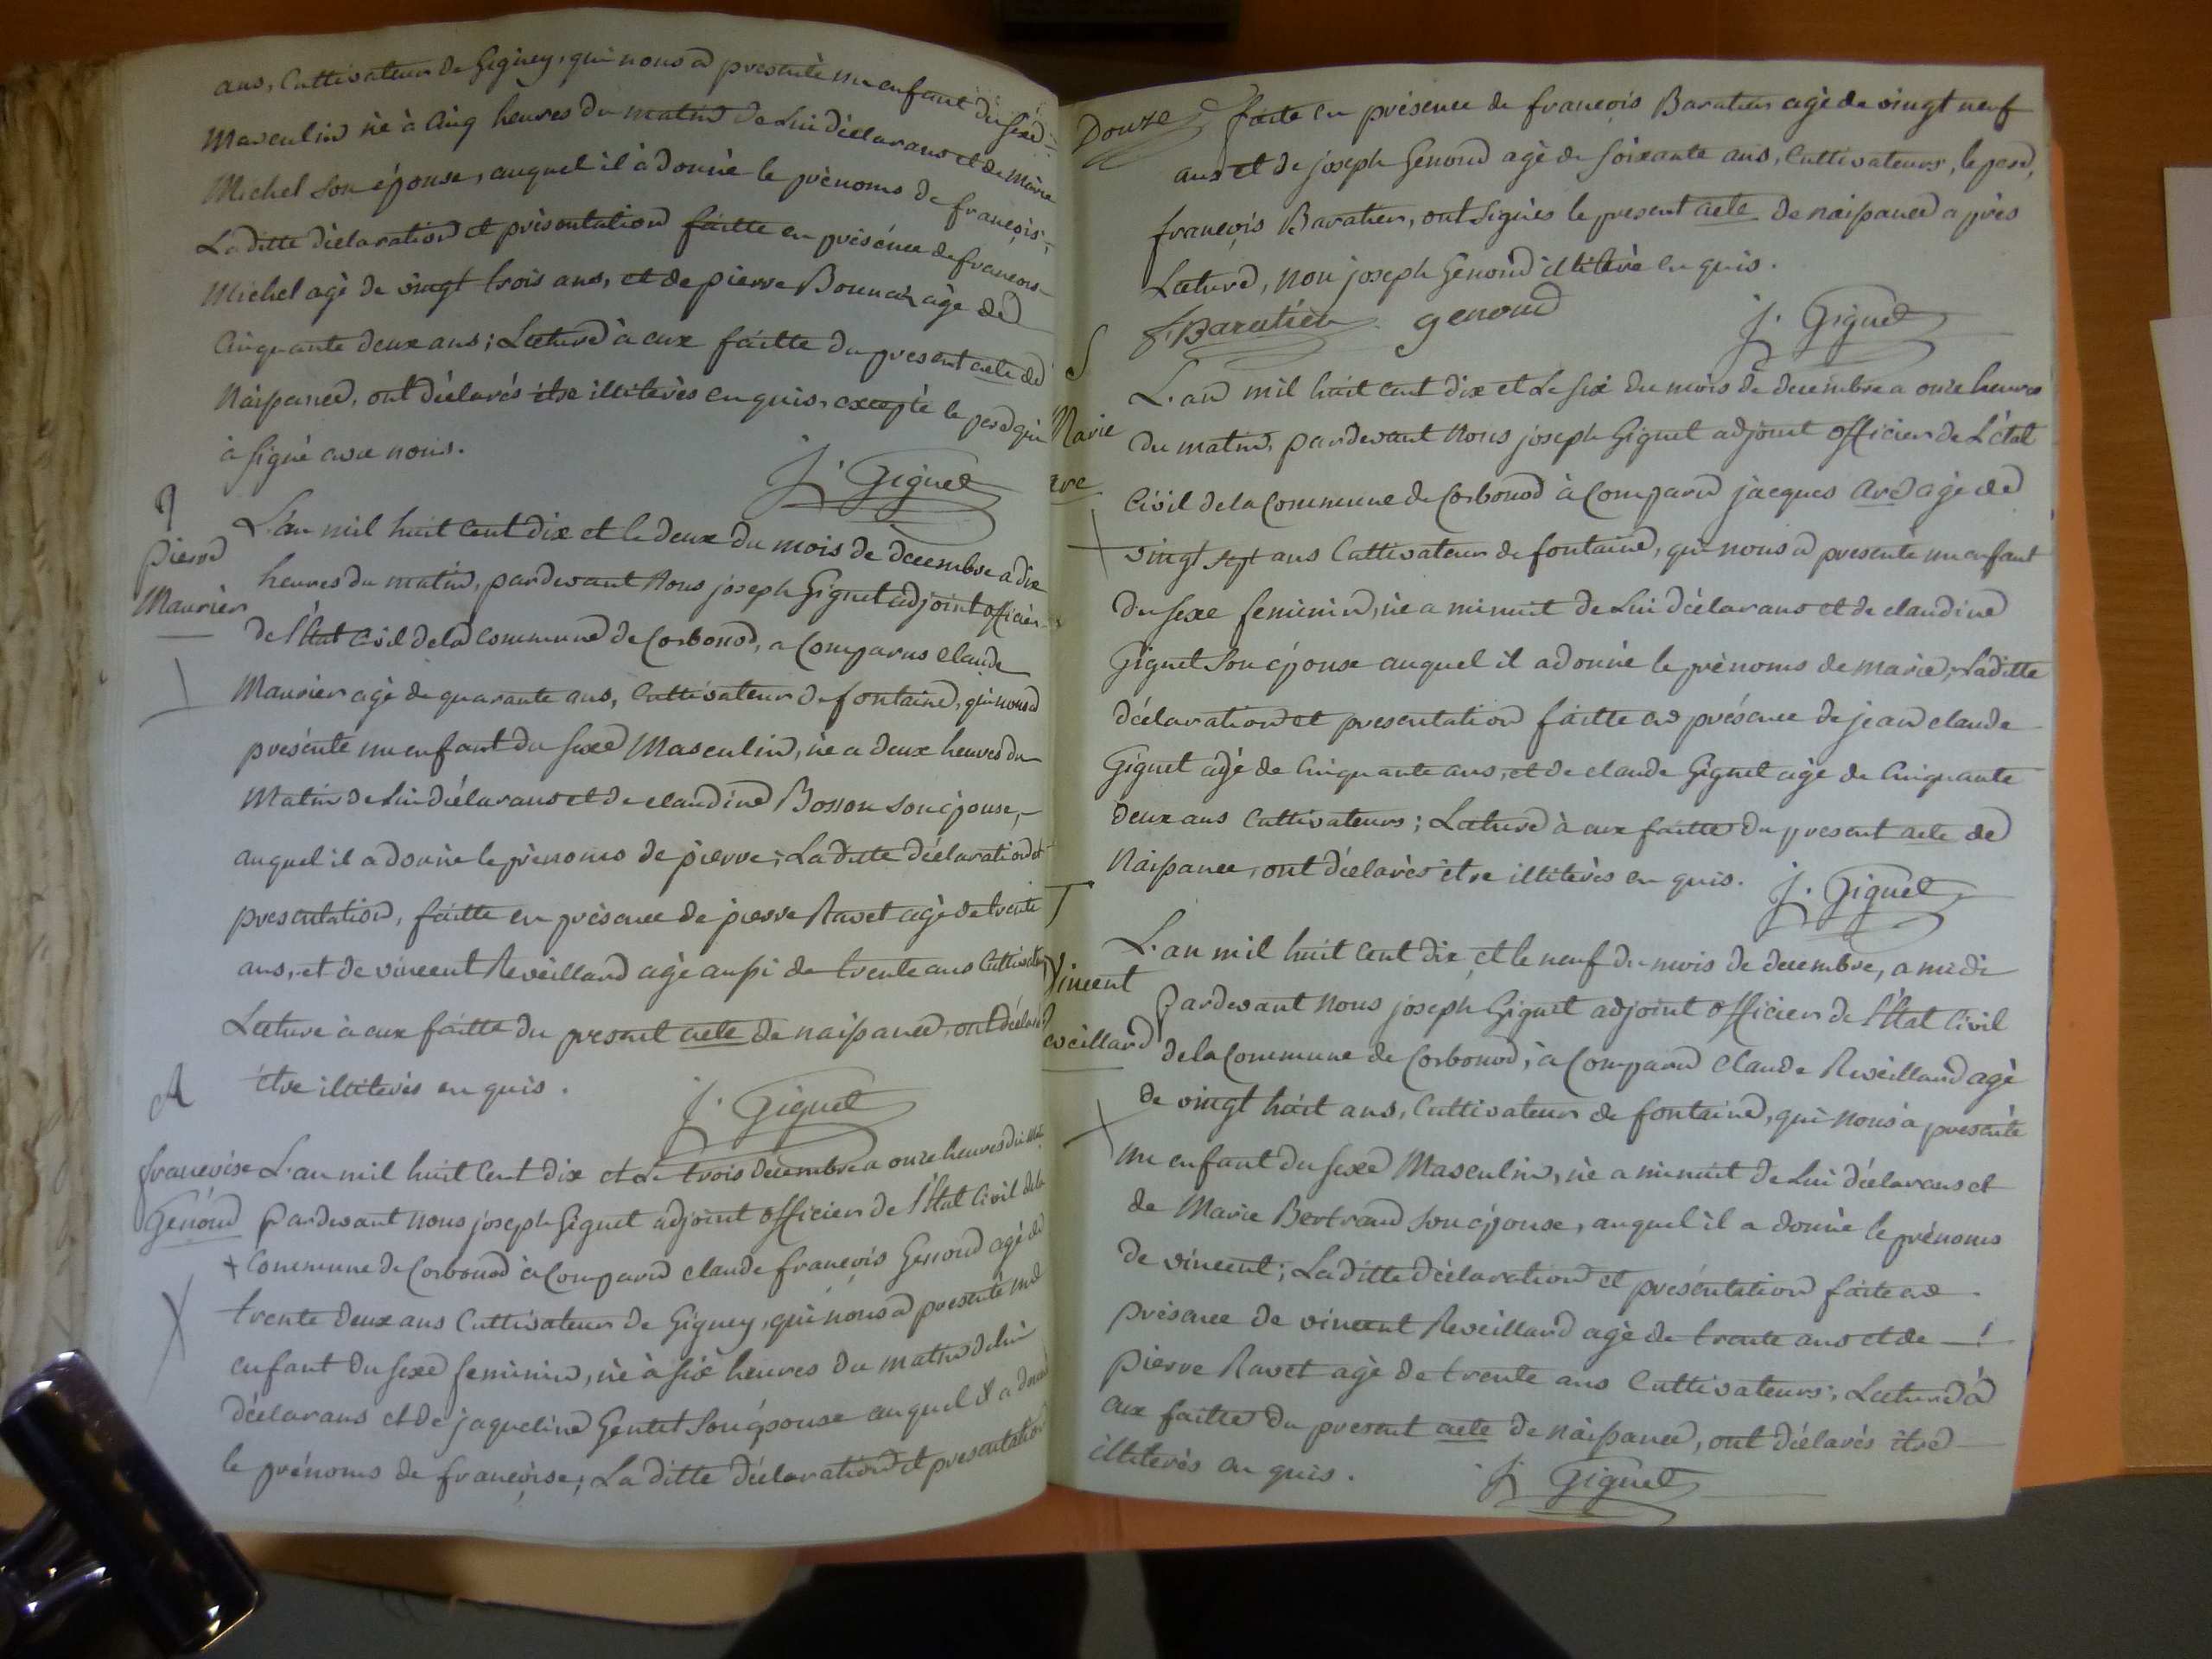 ans, Cultivateur de Gigney, qui nous a presenté un enfant du sexe
Masculin né à Cinq heures du matin de Lui déclarans et de Marie
Michel son épouse, auquel il à donné le prénoms de françois;
La ditte déclaration et présentation faitte en présence de francois
Michel agé de vingt trois ans, et de pierre Bonnaz agé de
Cinquante deux ans; Lecture à eux faitte du present acte de
Naissance, ont déclarés être illiterés enquis, excepté le pere qui
à signé avec nous.
J. Giguet
Pierre
Maurier
L'an mil huit Cent dix et le deux du mois de decembre a dix
heures du matin, pardevant Nous joseph Giguet adjoint officier
de l'Etat Civil de la Commune de Corbonod, a Comparus Claude
Maurier agé de quarante ans, Cultivateur de fontaine, qui nous a
présenté un enfant du sexe Masculin, né a deux heures du
Matin de Lui déclarans et de claudine Bosson son épouse,
auquel il a donné le prénoms de pierre; La ditte déclaration et
presentation, faitte en présence de pierre Ravet agé de trente
ans, et de vincent Reveillard agé aussi de trente ans Cultivateurs
Lecture à eux faitte du present acte de naissance, ont déclarés
être illiterés enquis.
J. Giguet
A
francoise
Génoud
L'an mil huit Cent dix et Le trois decembre a onze heures du matin
Pardevant nous joseph Giguet adjoint officier de l'Etat Civil de la
+ Commune de Corbonod à Comparu claude françois Genoud agé de
trente deux ans Cultivateur de Gigney, qui nous a presenté un
enfant du sexe feminin, né à six heures du matin de lui
déclarans et de jaqueline Gentet son épouse auquel il a donné
le prénoms de françoise; La ditte déclaration et presentation
Douze
faite en présence de françois Baratier agé de vingt neuf
ans et de joseph Genoud agé de soixante ans, Cultivateurs, le pere,
françois Baratier, ont signés le present acte de naissance après
Lecture, non joseph Genoud illiteré enquis.
f. Baratier genoud J. Giguet
S
Marie
are
L'an mil huit cent dix et Le six du mois de decembre a onze heures
du matin, pardevant Nous joseph Giguet adjoint officier de L'état
Civil de la Commune de Corbonod à Comparu jacques are agé de
vingt sept ans Cultivateur de fontaine, qui nous a presenté un enfant
du sexe feminin, né a minuit de Lui déclarans et de claudine
Giguet son épouse auquel il a donné le prénoms de marie; Laditte
déclaration et presentation faitte en présence de jean claude
Giguet agé de Cinquante ans, et de claude Giguet agé de Cinquante
deux ans Cultivateurs; Lecture à eux faitte du present acte de
Naissance, ont déclarés être illiterés enquis. J. Giguet
T
Vincent
eveillard
L'an mil huit Cent dix et le neuf du mois de decembre, a midi
Pardevant Nous joseph Giguet adjoint officier de l'Etat Civil
de la Commune de Corbonod, à Comparu Claude Reveillard agé
de vingt huit ans, Cultivateur de fontaine, qui nous à présenté
un enfant du sexe Masculin, né a minuit de Lui déclarans et
de Marie Bertrand son épouse, auquel il a donné le prénoms
de vincent; La ditte déclaration et présentation faite en
présence de vincent Reveillard agé de trente ans et de
Pierre Ravet agé de trente ans Cultivateurs; Lecture à
eux faitte du present acte de naissance, ont déclarés être
illiterés enquis. J. Giguet